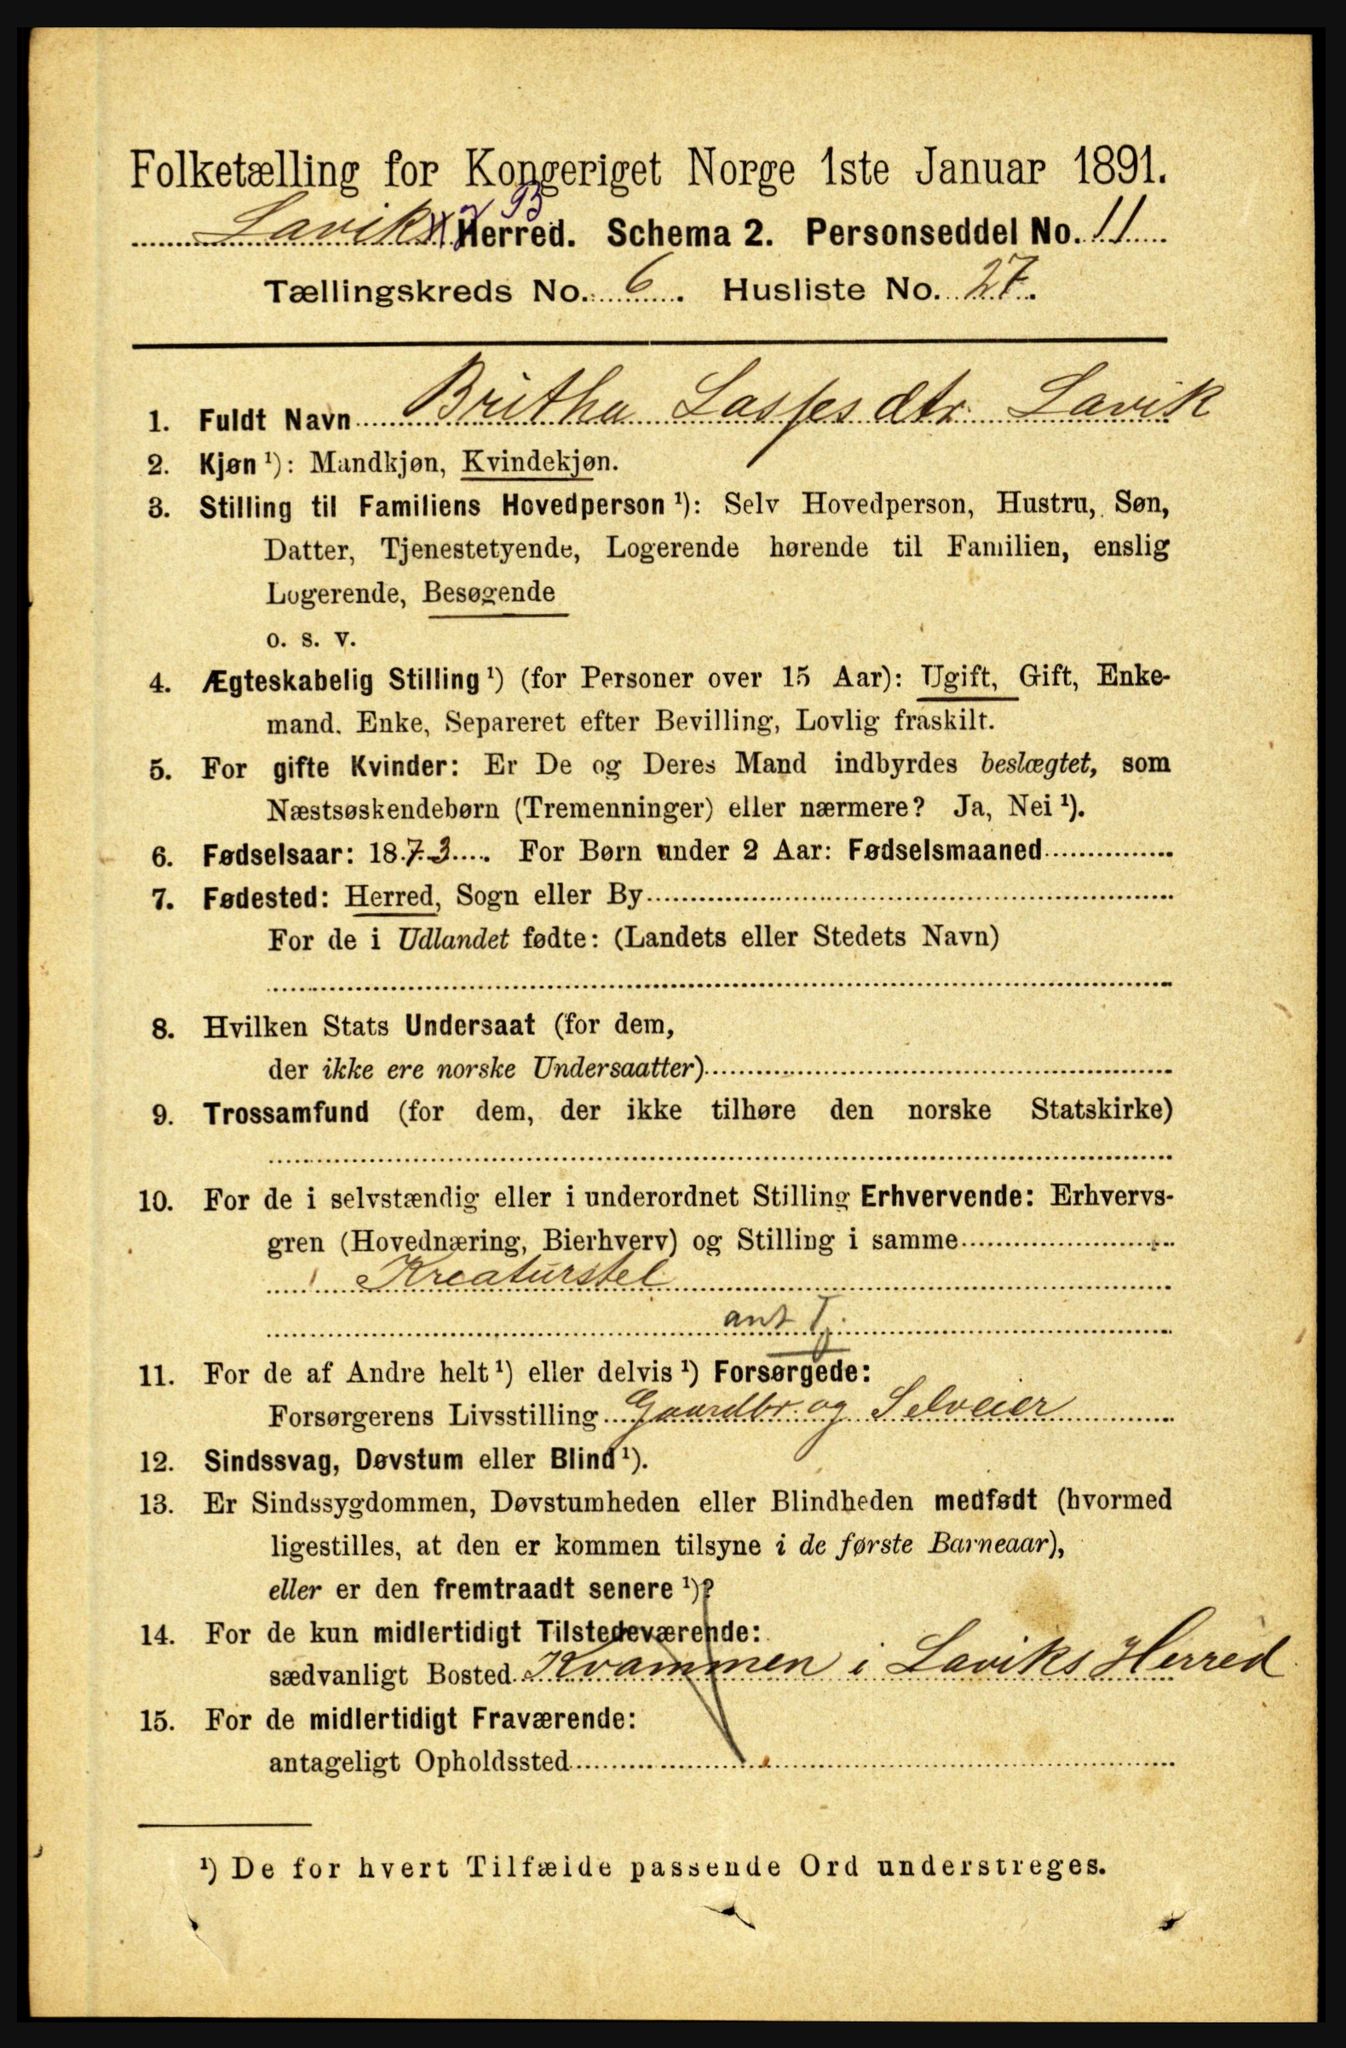 Folketælling for Kongeriget Norge 1ste Januar 1891.
Laviks Herred. Schema 2. Personseddel No. 11
Tællingskreds No. 6. Husliste No. 27.
1. Fuldt Navn Britha Lassesdtr. Lavik
2. Kjøn ¹): Mandkjøn, Kvindekjøn.
3. Stilling til Familiens Hovedperson ¹): Selv Hovedperson, Hustru, Søn,
Datter, Tjenestetyende, Logerende hørende til Familien, enslig
Logerende, Besøgende
o. s. v.
4. Ægteskabelig Stilling ¹) (for Personer over 15 Aar): Ugift, Gift, Enke-
mand. Enke, Separeret efter Bevilling, Lovlig fraskilt.
5. For gifte Kvinder: Er De og Deres Mand indbyrdes beslægtet, som
Næstsøskendebørn (Tremenninger) eller nærmere? Ja, Nei ¹).
6. Fødselsaar: 1873. For Børn under 2 Aar: Fødselsmaaned
7. Fødested: Herred, Sogn eller By
For de i Udlandet fødte: (Landets eller Stedets Navn)
8. Hvilken Stats Undersaat (for dem,
der ikke ere norske Undersaatter)
9. Trossamfund (for dem, der ikke tilhøre den norske Statskirke)
10. For de i selvstændig eller i underordnet Stilling Erhvervende: Erhvervs-
gren (Hovednæring, Bierhverv) og Stilling i samme
Kreaturstel
ant Tj.
11. For de af Andre helt ¹) eller delvis ¹) Forsørgede:
Forsørgerens Livsstilling Gaardbr. og Selveier
12. Sindssvag, Døvstum eller Blind ¹).
13. Er Sindssygdommen, Døvstumheden eller Blindheden medfødt (hvormed
ligestilles, at den er kommen tilsyne i de første Barneaar),
eller er den fremtraadt senere ¹)?
14. For de kun midlertidigt Tilstedeværende:
sædvanligt Bosted Kvammen i Laviks Herred
15. For de midlertidigt Fraværende:
antageligt Opholdssted
¹) De for hvert Tilfælde passende Ord understreges.